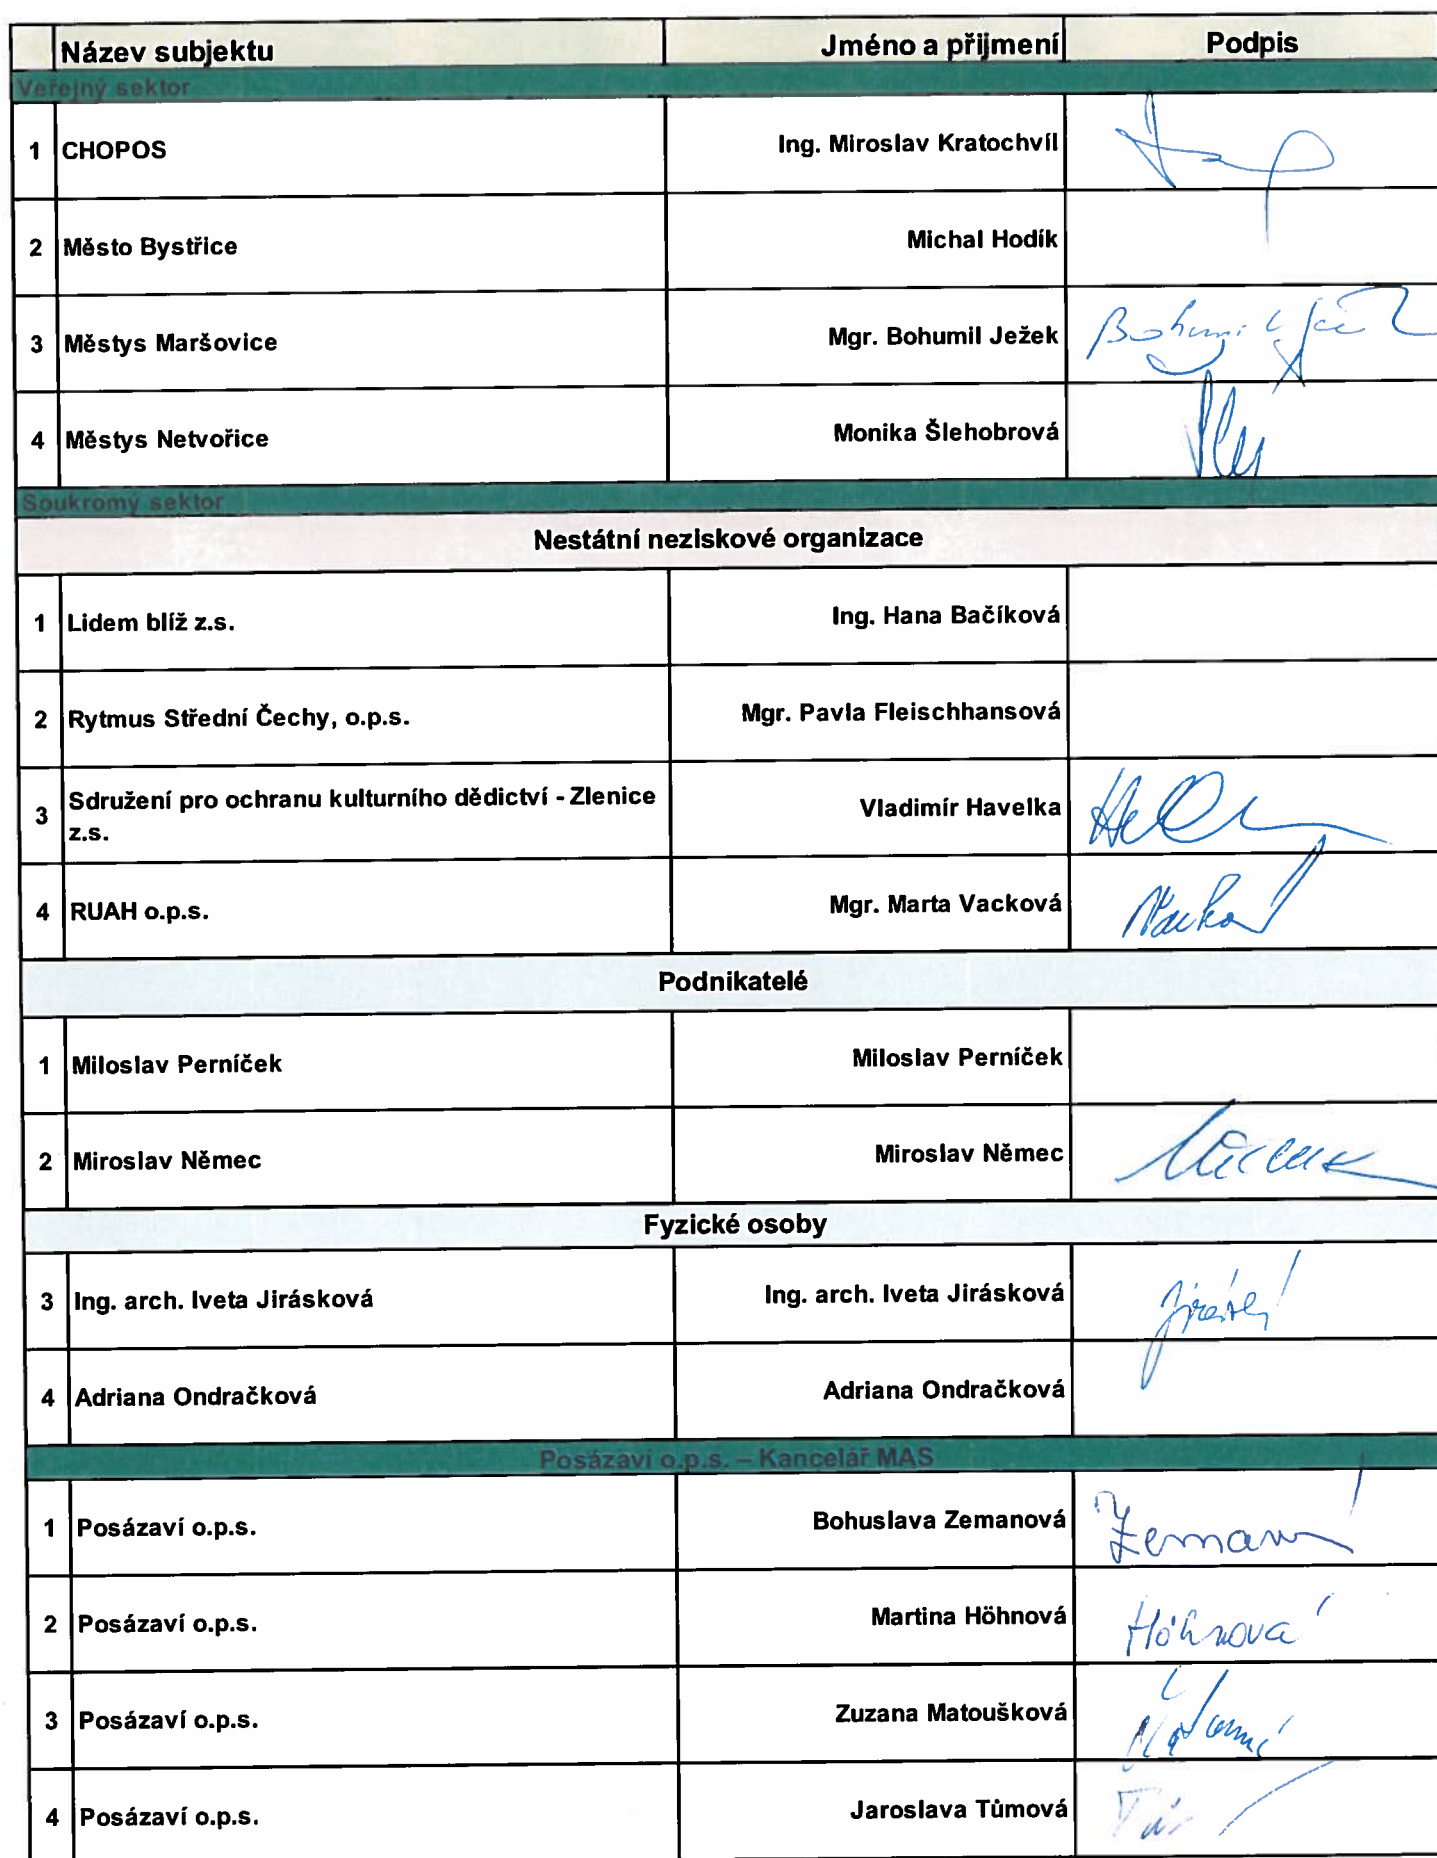 Název subjektu Jméno a přijmení Podpis
Veřejný sektor
1 CHOPOS Ing. Miroslav Kratochvíl
2 Město Bystřice Michal Hodík
3 Městys Maršovice Mgr. Bohumil Ježek Bohumil
4 Městys Netvořice Monika Šlehobrová
Soukromý sektor
Nestátní neziskové organizace
1 Lidem blíž z.s. Ing. Hana Bačíková
2 Rytmus Střední Čechy, o.p.s. Mgr. Pavla Fleischhansová
3 Sdružení pro ochranu kulturního dědictví - Zlenice
z.s. Vladimír Havelka
4 RUAH o.p.s. Mgr. Marta Vacková
Podnikatelé
1 Miloslav Perníček Miloslav Perníček
2 Miroslav Němec Miroslav Němec
Fyzické osoby
3 Ing. arch. Iveta Jirásková Ing. arch. Iveta Jirásková
4 Adriana Ondračková Adriana Ondračková
Posázaví o.p.s. – Kancelář MAS
1 Posázaví o.p.s. Bohuslava Zemanová Zemanová
2 Posázaví o.p.s. Martina Höhnová Höhnová
3 Posázaví o.p.s. Zuzana Matoušková
4 Posázaví o.p.s. Jaroslava Tůmová